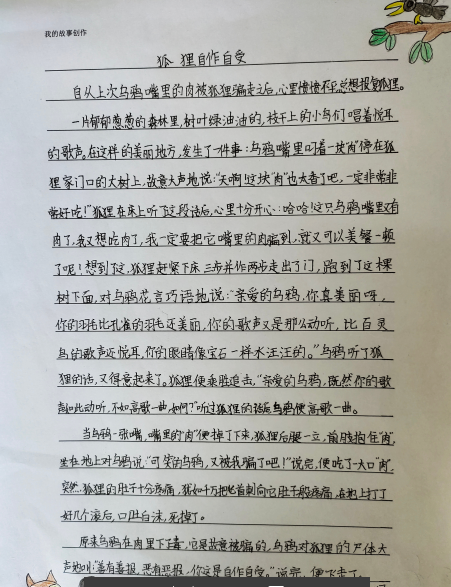 我的故事创作
狐狸自作自受
自从上次乌鸦嘴里的肉被狐狸骗走之后,心里愤愤不平总想报复狐狸。
一片郁郁葱葱的森林里,树叶绿油油的,枝干上的小鸟们唱着悦耳
的歌声。在这样的美丽地方,发生了一件事:乌鸦嘴里叼着一块"肉"停在狐
狸家门口的大树上,故意大声地说:"天啊!这块"肉"也太香了吧,一定非常非
常好吃!"狐狸在床上听了这段话后,心里十分开心:哈哈!这只乌鸦嘴里又有
肉了,我又想吃肉了,我一定要把它嘴里的肉骗到,就又可以美餐一顿
了呢!想到了这,狐狸赶紧下床三步并作两步走出了门,跑到了这棵
树下面,对乌鸦花言巧语地说:"亲爱的乌鸦,你真美丽呀,
你的羽毛比孔雀的羽毛还美丽,你的歌声又是那么动听,比百灵
鸟的歌声还悦耳,你的眼睛像宝石一样水汪汪的。"乌鸦听了狐
狸的话,又得意起来了。狐狸便乘胜追击,"亲爱的乌鸦,既然你的歌
声如此动听,不如高歌一曲如何?"听过狐狸的话后乌鸦便高歌一曲。
当乌鸦一张嘴,嘴里的"肉"便掉了下来,狐狸后腿一立,前肢抱住"肉",
坐在地上对乌鸦说:"可笑的乌鸦,又被我骗了吧!"说完,便吃了一大口"肉",
突然,狐狸的肚子十分疼痛,犹如千万把匕首刺向它肚子般疼痛,在地上打了
好几个滚后,口吐白沫,死掉了。
原来乌鸦在肉里下了毒,它是故意被骗的,乌鸦对狐狸的尸体大
声地叫:"善有善报,恶有恶报,你这是自作自受。"说完,便飞走了。